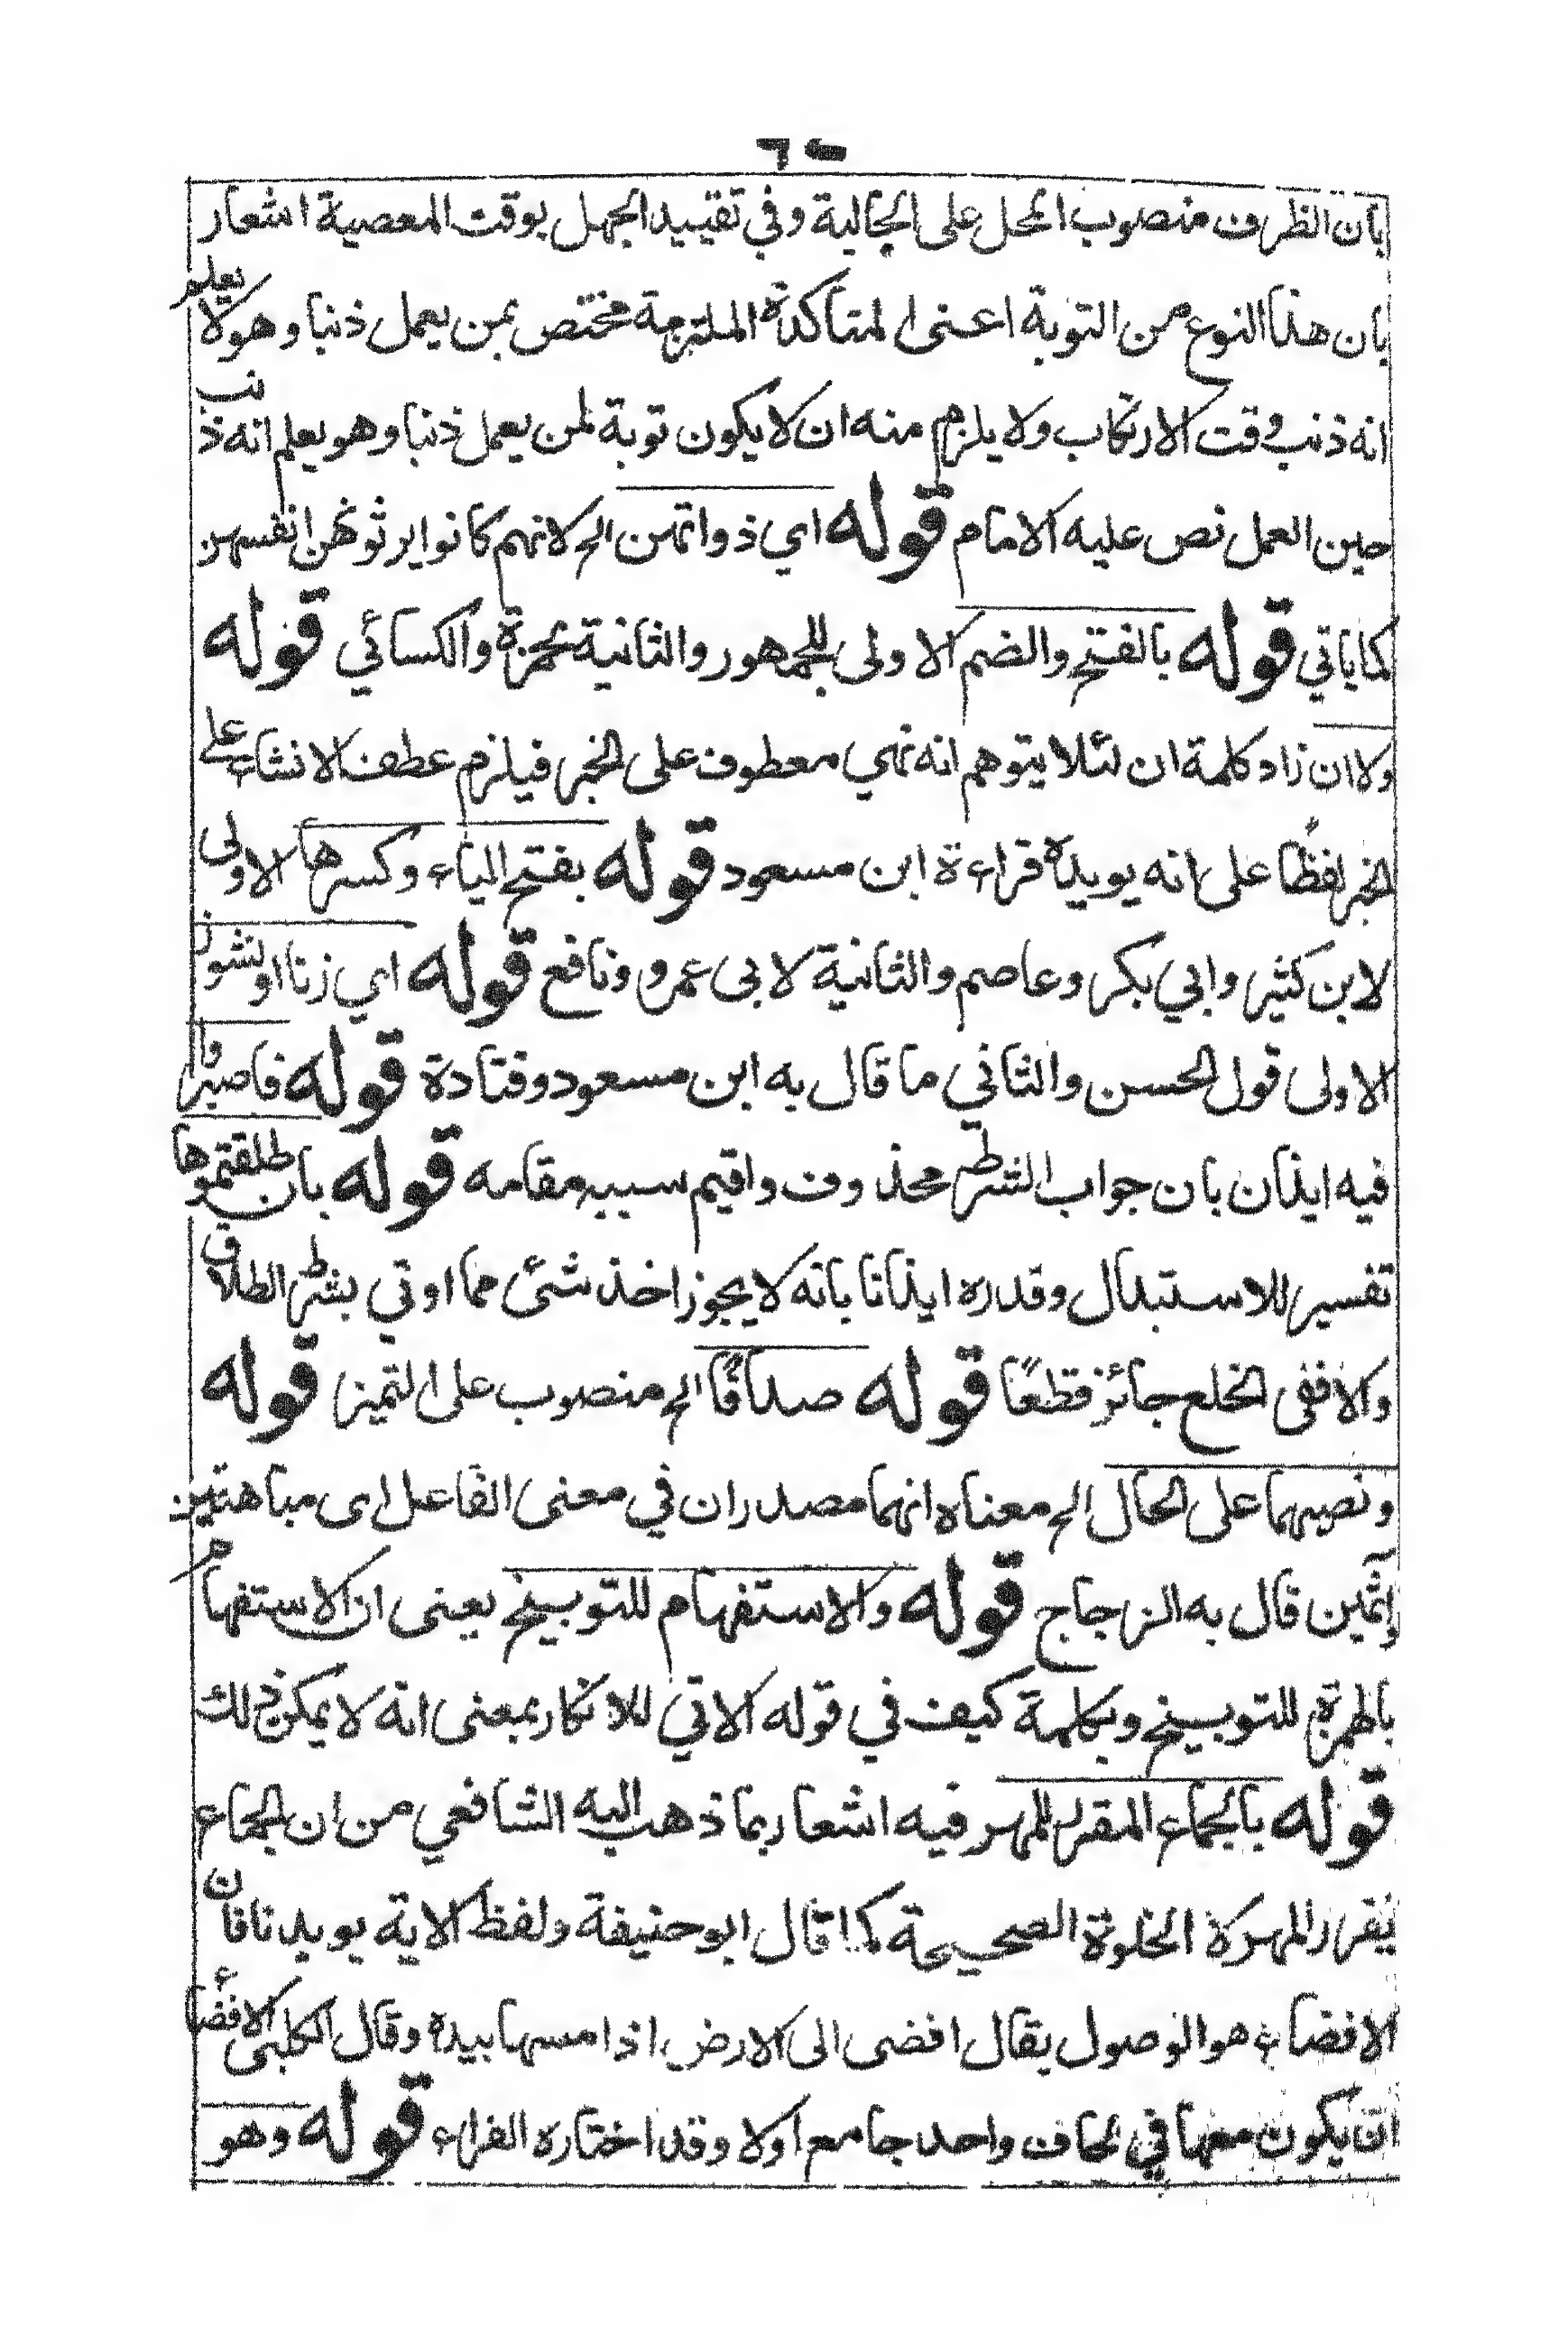 بان الظرف منصوب المحل على الحالية وفي تقييد الجهل بوقت المعصية اشعار
بان هذا النوع من التوبة اعنى المتأكدة الملتزمة مختص بمن يعمل ذنبا وهو لا يعلم
انه ذنب وقت الارتكاب ولا يلزم منه ان لا يكون توبة لمن يعمل ذنبا وهو يعلم انه ذنب
حين العمل نص عليه الامام قوله اي ذواتهن الخ لانهم كانوا يرثونهن انفسهن
كما ياتي قوله بالفتح والضم الاولى للجمهور والثانية لحمزة والكسائي قوله
ولا ان زاد كلمة ان لئلا يتوهم انه نهي معطوف على الخبر فيلزم عطف الانشاء على
الخبر لفظا على انه يويده قراءة ابن مسعود قوله بفتح الياء وكسرها الاولى
لابن كثير وابي بكر وعاصم والثانية لابى عمرو ونافع قوله اي زنا او نشوز
الاولى قول الحسن والثاني ما قال به ابن مسعود وقتادة قوله فاصبروا
فيه ايذان بان جواب الشرط محذوف واقيم سببه مقامه قوله بان طلقتموها
تفسير للاستبدال وقدره ايذانا بانه لا يجوز اخذ شئ مما اوتي بشرط الطلاق
والا ففى الخلع جائز قطعًا قوله صداقًا الخ منصوب على التميز قوله
ونصبهما على الحال الخ معناه انهما مصدران في معنى الفاعل اى مباهتين
واثمين قال به الزجاج قوله والاستفهام للتوبيخ يعنى ان الاستفهام
بالهمزة للتوبيخ وبكلمة كيف في قوله الاتي للانكار بمعنى انه لا يمكن ذلك
قوله بالجماع المقرر للمهر فيه اشعار بما ذهب اليه الشافعي من ان الجماع
يقرر المهر لا الخلوة الصحيحة كما قال ابو حنيفة ولفظ الاية يويدنا فان
الافضاء هو الوصول يقال افضى الى الارض اذا مسها بيده وقال الكلبى الافضاء
ان يكون معها في لحاف واحد جامع اولا وقد اختاره الفراء قوله وهو